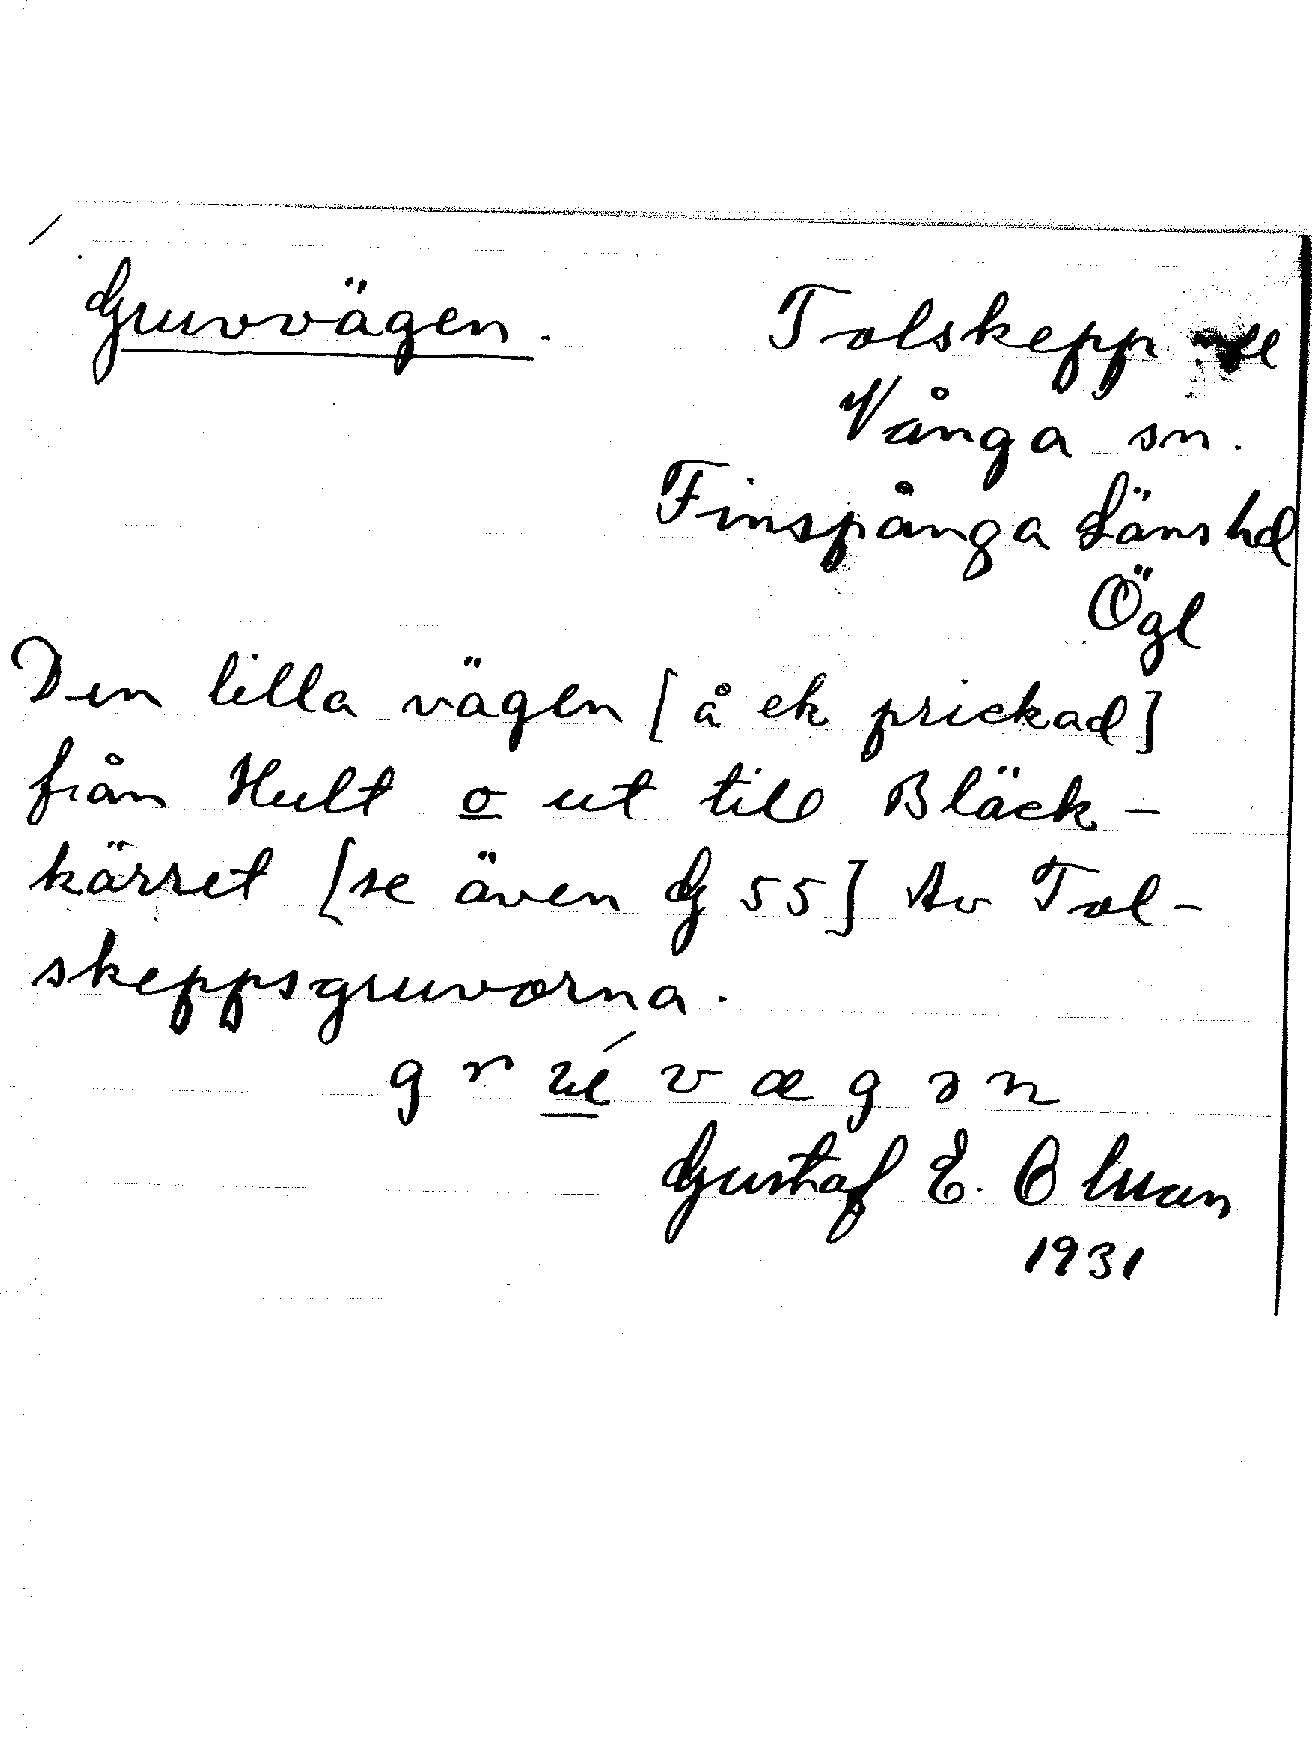 Gruvvägen.
Tolskepp
Vånga sn.
Finspånga Läns hd
Ögl
Den lilla vägen [å ek prickad]
från Hult o ut till Bläck-
kärret [se även G 55] Av Tol-
skeppsgruvorna.
Gustaf E. Olsson
1931